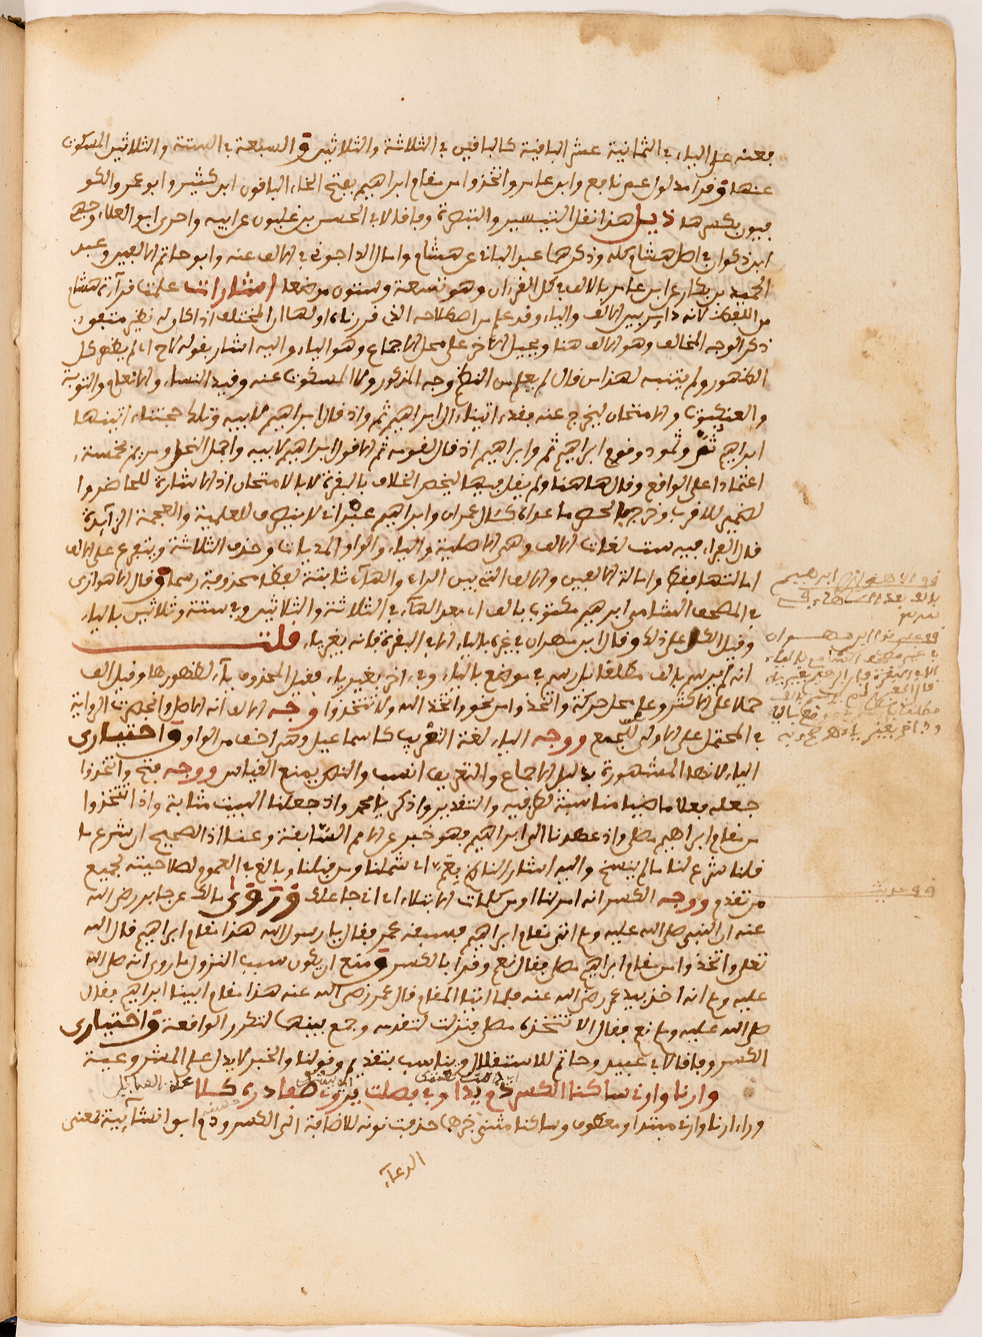 فعنه على الياء في الثمانية عشر الباقية كالباقين في الثلاثة والثلاثين والسبعة في الستة والثلاثين المسكوت
عنها وقرأ مدلول عم نافع وابن عامر واتخذوا من مقام ابراهيم بفتح الخاء الباقون ابن كثير وابو عمرو والكو
فيون بكسرها ذيل هذا نقل التيسير والتبصرة وفاقا لابي الحسن بن غلبون عن ابيه واجرى ابو العلاء وجهي
ابن ذكوان في اصل هشام كله وذكرها عبد الباقي عن هشام وامال الداجوني في الالف عنه وابو حاتم العين وعبد
الحميد بن بكار عن ابن عامر بالالف في كل القرآن وهو تسعة وستون موضعا اشارات علمت قرآءة هشام
من اللفظ لانه دار بين الالف والياء وقد علم من اصطلاحه الذي قررناه اولها ان المختلف اذا كان له نظير متفق
ذكر الوجه المخالف وهو الالف هنا ويحيل الآخر على محل الاجماع وهو الياء واليه اشار بقوله لاح اى لم يظهر كل
الظهور ولم يتنبه لهذا من قال لم يعلم من النظم وجه المذكور ولا المسكوت عنه وقيد النساء والانعام والتوبة
والعنكبوت والامتحان ليخرج عنه فقد ءاتينا ءال ابراهيم ثم واذ قال ابراهيم لابيه وتلك حجتنا ءاتيناها
ابراهيم ثم وثمود وقوم ابراهيم ثم وابراهيم اذ قال لقومه ثم الا قول ابراهيم لابيه واهمل النحل ومريم لخمسته
اعتمادا على الواقع وقال ها هنا ولم يقل فيها ليخص الخلاف بالبقرة لا بالامتحان اذ الاشارة للحاضر وا
لضمير للاقرب وخرج بالحصر ما عداه كـآل عمران وابراهيم عبراني لا ينصرف للعلمية والعجمة الزآيدة
قال الفراء فيه ست لغات الالف وهي الاصلية والياء والواو المديات وحذف الثلاثة ويتفرع على الالف
امالتها فقط وامالة الالفين والالف التي بين الراء والهآء ثابتة لفظا محذوفة رسما وقال الاهوازي
في المصحف الشامي ابرهيم مكتوب بالف اى بعد الهآء في الثلاثة والثلاثين وفي ستة وثلاثين بالياء
وقيل الكل على ذلك وقال ابن مهران في غيره بالياء الا في البقرة فانه بغير ياء قلت
انه لم يرسم بالف مطلقا بل رسم في موضع بالياء وفي آخر بغير ياء فقيل المحذوف يآء لظهورها وقيل الف
حملا على الاكثر وعلى محل حركة واتخذ وامن نحو واتخذ الله ولا تتخذوا وجه الالف انه الاصل وانحصرت الرواية
في المحتمل على الاولى للجمع ووجه الياء لغة التعريب كاسماعيل وهي اخف من الواو واختياري
الياء لانها المشهورة بدليل الاجماع والتعريف انسب والنص يمنع القياس ووجه فتح واتخذوا
جعله فعلا ماضيا مناسبة لطرفيه والتقدير واذكر يا محمد واذ جعلنا البيت مثابة واذ اتخذوا
من مقام ابراهيم مصلى واذ عهدنا الى ابراهيم فهو خبر عن الامم السابقة وعنا اذ الصحيح ان شرع ما
قبلنا شرع لنا ما لم ينسخ واليه اشار الناظم بـعم اى شملنا ومن قبلنا وبالغ في العموم لصلاحيته لجميع
من تقدم ووجه الكسر انه امر لنا او من كلمات الابتلاء اى اني جاعلك وروى مالك عن جابر رضى الله
عنه ان النبي صلى الله عليه وسلم اتى مقام ابراهيم فسبقه عمر فقال يا رسول الله هذا مقام ابراهيم قال الله
تعلى واتخذوا من مقام ابراهيم مصلى فقال نعم وقرأ بالكسر ومنع ان يكون سبب النزول ما روى انه صلى الله
عليه وسلم انه اخذ بيد عمر رضى الله عنه فلما اتيا المقام قال عمر رضى الله عنه هذا مقام ابينا ابراهيم فقال
صلى الله عليه وسلم نعم فقال الا نتخذه مصلى فنزلت لتقدمه وجمع بينهما لتكرر الواقعة واختياري
الكسر وفاقا لابي عبيد وحاتم للاستقلال ويناسب بتقديم وقولنا والخبر لا يدل على المشروعية
وارنا وارني ساكنا الكسر دم يدا وفي فصلت يروى صفا دره كلا
وراء ارنا وارني مبتدأ ومعطوف وساكنا مثنى خبرهما حذفت نونه للاضافة الى الكسر ودم ابو انشآئية لمعنى
الدعآء